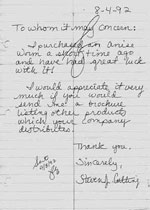 8-4-92
To whom it may concern:
I purchased an anise
worm a short time ago
and have had great luck
with it!
I would appreciate it very
much if you would
send me a brochure
listing other products
which your company
distributes.
Thank you.
Sincerely,
Steven J.
Sent